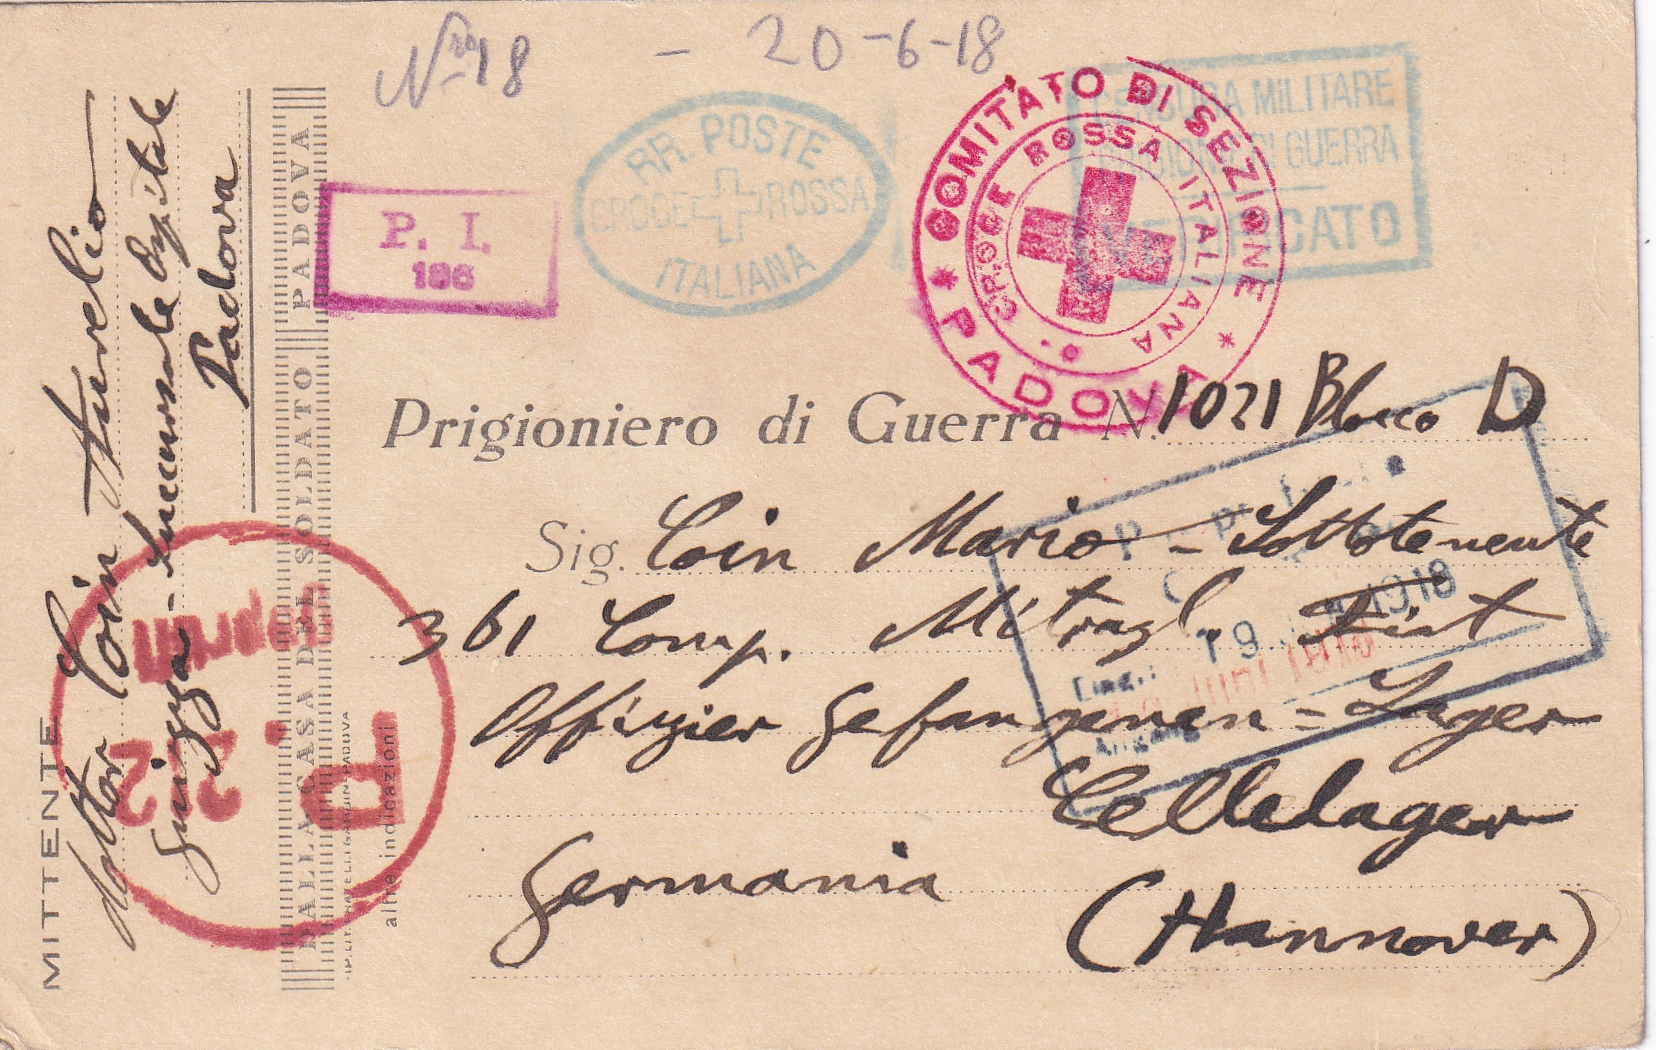 Nro 18 - 20-6-18
RR. POSTE
CROCE ROSSA
ITALIANA
COMITATO DI SEZIONE
* PADOVA *
CROCE ROSSA ITALIANA
CENSURA MILITARE
GUERRA
VERIFICATO
P. I.
186
Prigioniero di Guerra N. 1021 Blocco D
Sig. Coin Mario - Sottotenente
361 Comp. Mitragl. Fiat
Offizier Gefangenen = Lager
Cellelager
Germania
(Hannover)
19 1918
Juni 1918
MITTENTE
dottor Coin Aurelio
Guizza - Succursale Ospitale
Padova
DALLA CASA DEL SOLDATO PADOVA
altre indicazioni
Geprüft
F. a.
22